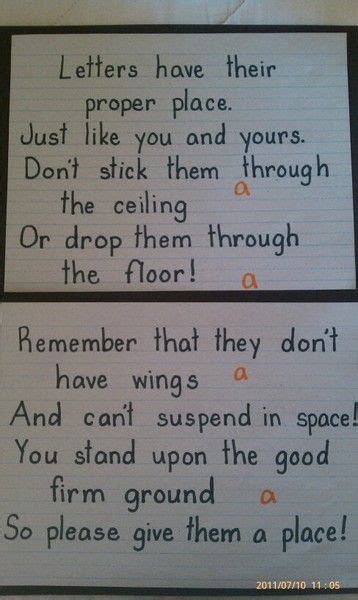 Letters have their
proper place.
Just like you and yours.
Don't stick them through
a
the ceiling
Or drop them through
the floor!
a
Remember that they don't
have wings a
And can't suspend in space!
You stand upon the good
firm ground a
So please give them a place!
2011/07/10 11:05